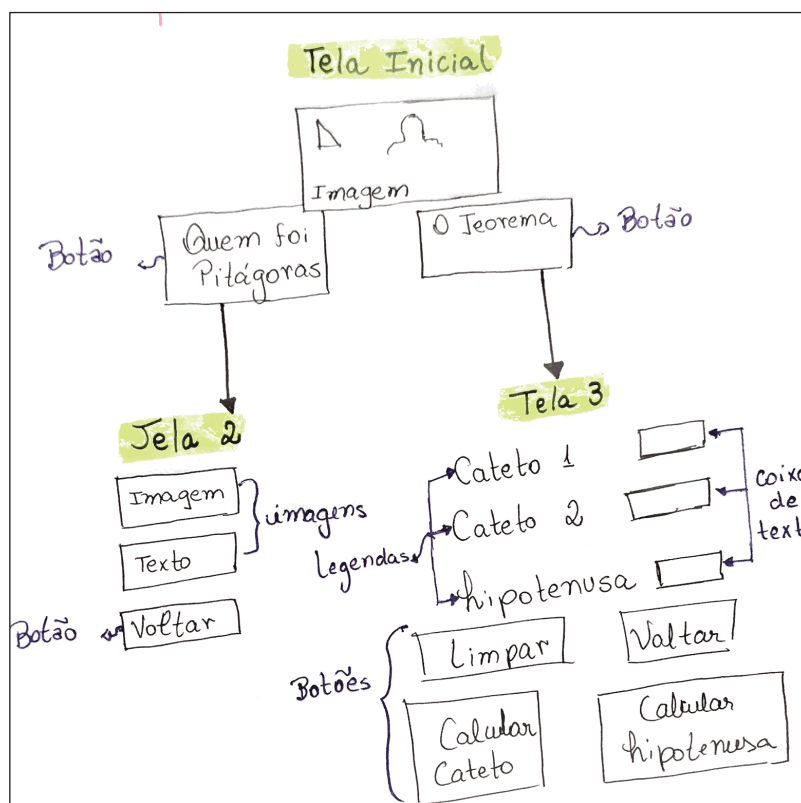 Tela Inicial
Imagem
Botão
Quem foi
Pitágoras
O Teorema
Botão
Tela 2
Imagem
Texto
imagens
Botão
Voltar
Tela 3
Cateto 1
Cateto 2
hipotenusa
legendas
coixa
de
text
Botões
Limpar
Valtar
Calular
Cateto
Calcular
hipotenusa